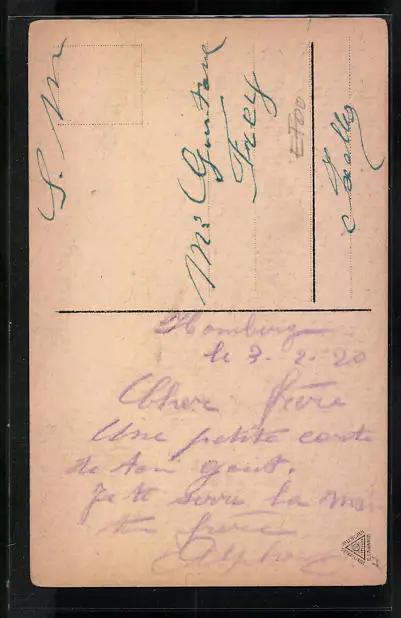 S. M
Mr Gustave
Frey
ET00
Homberg
le 3. 2. 20
Cher frère
Une petite carte
de ton gout.
Je te serre la main
ton frère
Alphons